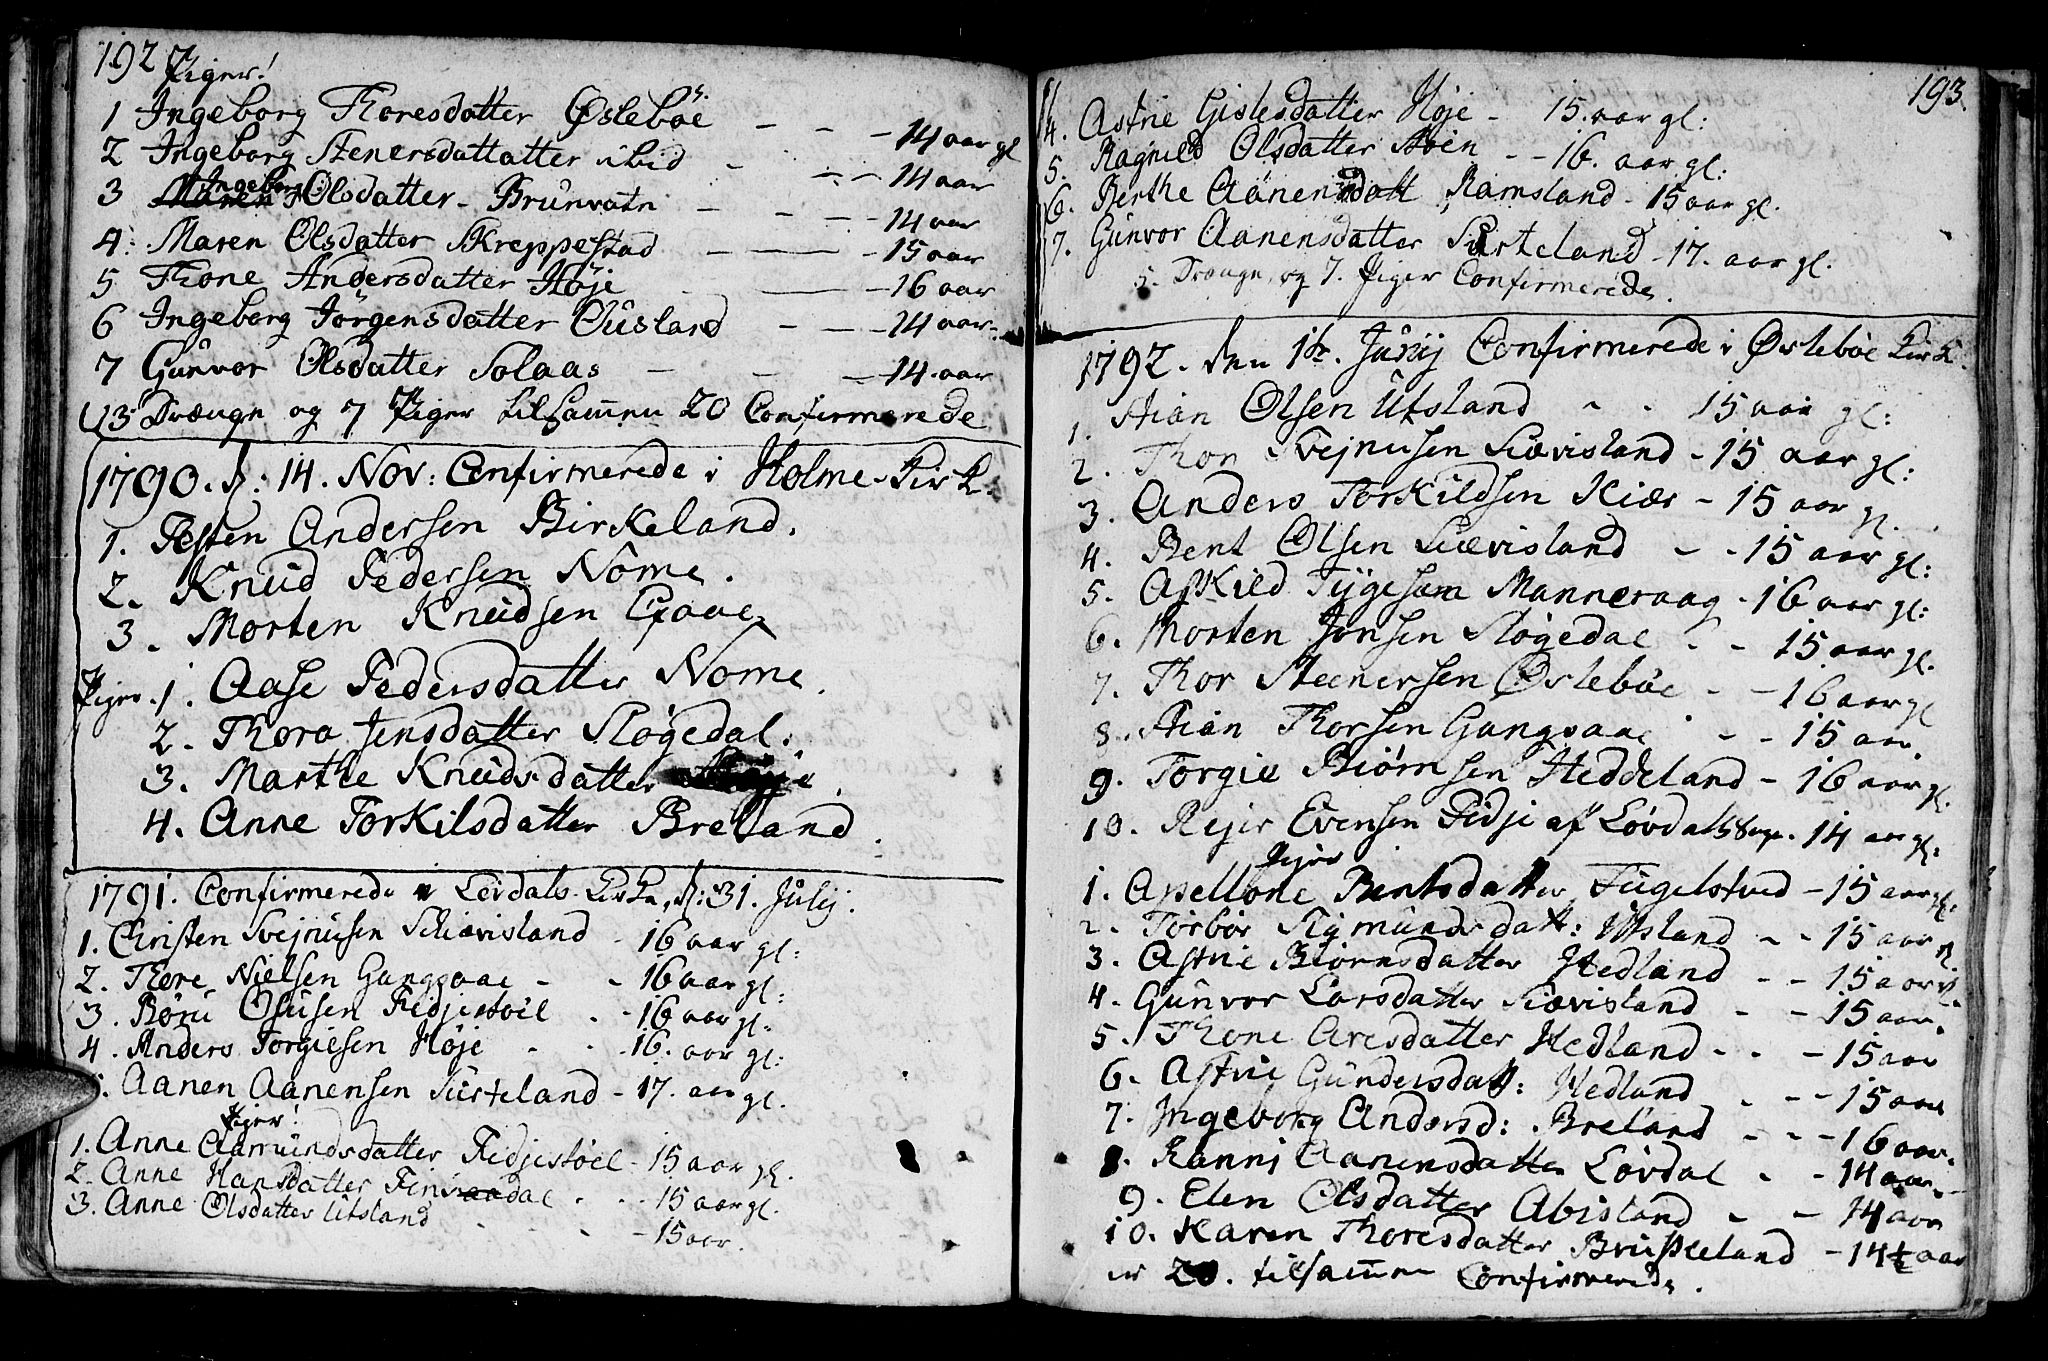 192
Piger!
1 Ingeborg Thoresdatter Øsleböe - - - 14 aar gl
2 Ingeborg Stenersdattatter ibid - - - 14 aar
3 Maren Ingeborg Olsdatter - Brunvatn - - - 14 aar
4. Maren Olsdatter Skreppestad - - 15 aar
5 Thone Andersdatter Höje - - 16 aar
6 Ingeborg Jörgensdatter Øusland - - - 14 aar
7 Gunvor Olsdatter Solaas - - - 14 aar
13 Drænge og 7 Piger tilsamen 20 Confirmerede
1790. d: 14. Nov: Confirmerede i Holme-Kirk.
1. Andersen Birkeland.
2. Knud Pedersen Nome.
3. Morten Knudsen Gaae.
Piger. 1. Aase Pedersdatter Nome.
2. Thora Jensdatter Slögedal.
3. Marthe Knudsdatter
4. Anne Torkilsdatter Breland.
1791. Confirmerede i Lövdals-Kirke, d: 31. Julij.
1. Christen Svejnusen Schievisland - 16 aar gl:
2. Thore Nielsen Gangsaae - - 16 aar gl:
3. Olusen Fidjestöel - - 16 aar gl:
4. Anders Torgiesen Höje - - 16. aar gl:
Aanen Aanensen Surteland - 17. aar gl.
Piger!
1. Anne Aamundsdatter Fidjestöel - 15 aar gl.
2. Anne Hansdatter Finsaadal - - 15 aar gl.
3. Anne Olsdatter Utsland - - - 15 aar.
193.
4. Astrie Gislesdatter Höje - 15. aar gl:
5. Ragnild Olsdatter Stöen - - 16. aar gl:
6. Berthe Aanensdatt Ramsland - 15 aar gl.
7. Gunvor Aanensdatter Surteland - 17. aar gl.
5. Drænge, og 7. Piger Confirmerede.
1792. den Junij Confirmerede i Øsleböe Kirk.
1. Stian Olsen Utsland - - 15 aar gl:
2. Thor Svejnusen Siævisland - 15 aar gl:
3. Anders Torkildsen Kiær - 15 aar gl.
4. Bent Olsen Siævisland - - 15 aar gl:
5. Askild Tygesøn Manneraag - 16 aar gl:
6. Morten Jonsen Slögedal - - 15 aar gl.
7. Thor Steenersen Øsleböe - - 16 aar gl
8. Stian Thorsen Gangsaae - - 15 aar.
9. Torgie Biörnsen Heddeland - 16 aar gl.
10. Rejer Evensen Fidje af Lövdals Sogn. 14 aar gl.
Piger
1. Apellone Bentsdatter Fugelstved - 15 aar gl.
2. Torbör Sigmundsdatt: Utsland - - 15 aar gl.
3. Astrie Biörnsdatter Hedland - - 15 aar gl.
4. Gunvor Larsdatter Siævisland - - 15 aar.
5. Thone Aresdatter Hedland - - - 15 aar
6. Astrie Gundersdatt: Hedland - - - 15 aar
7. Ingeborg Andersd: Breland - - - 16 aar.
8. Ranni Aanensdatter Lövdal - - 14 aar.
9. Elen Olsdatter Abisland - - 14 aar
10. Karen Thoresdatter Bruskeland - 14½ aar
er 20. tilsamen Confirmerede.